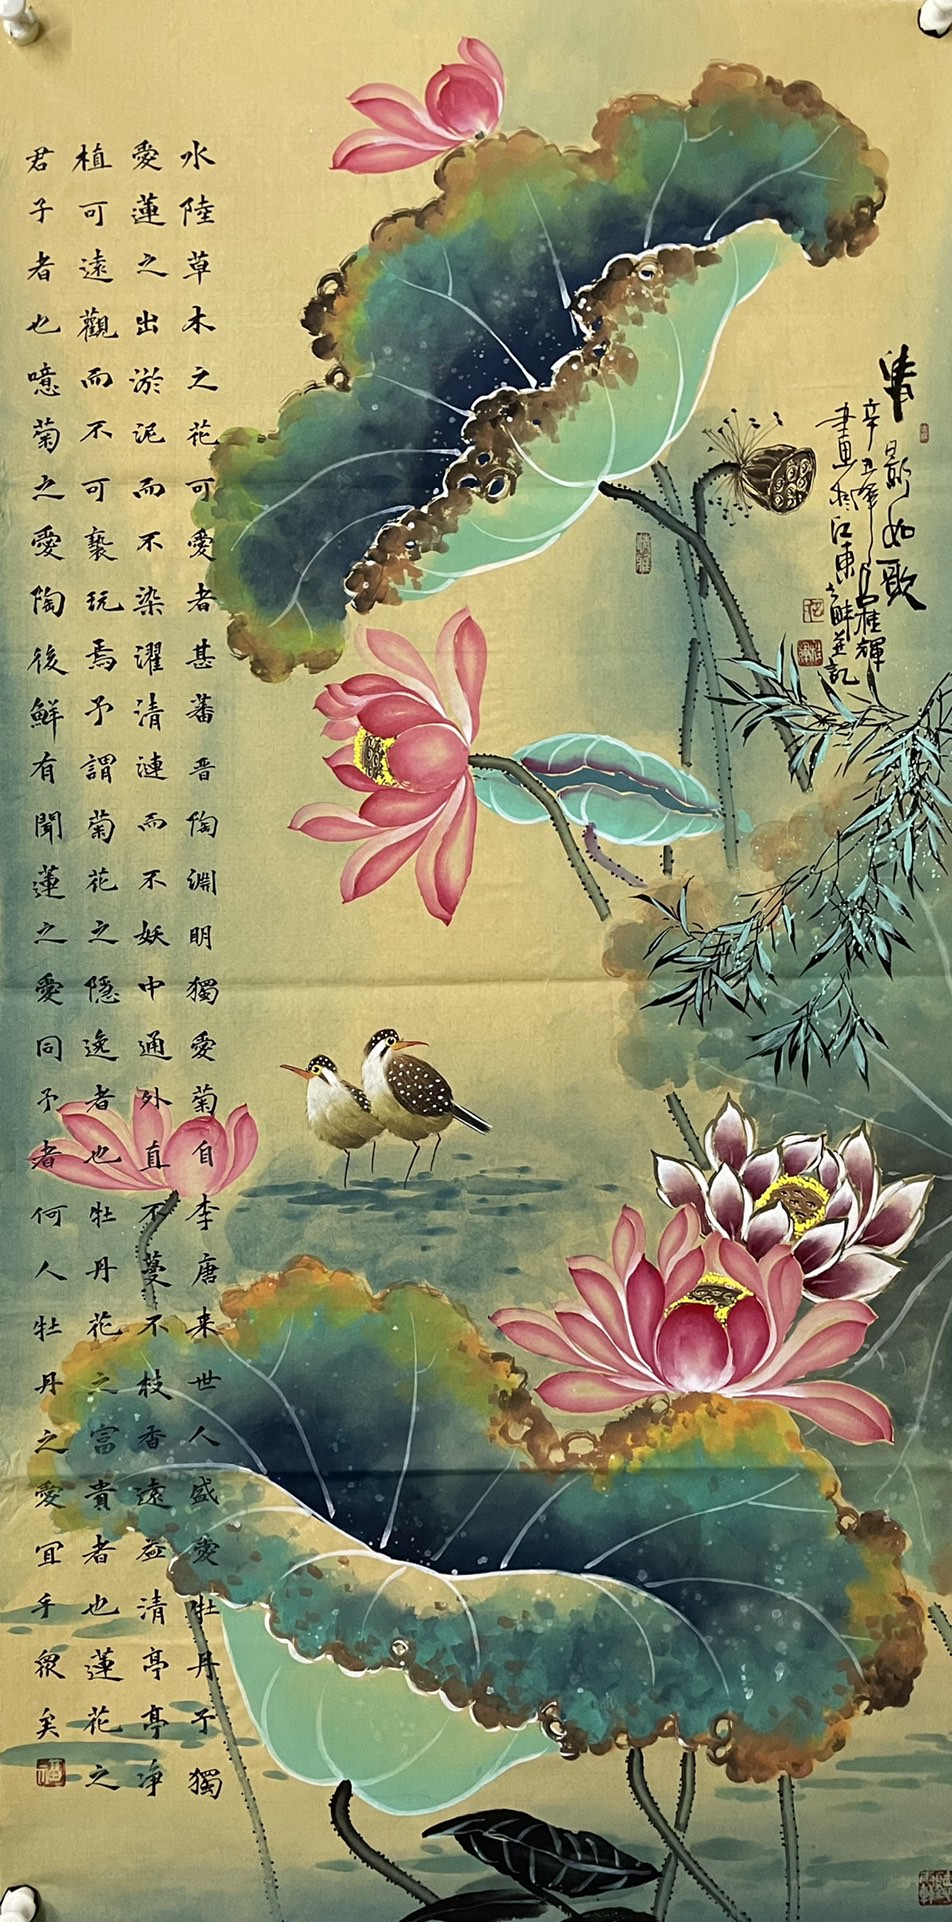 影如歌
辛丑
桂輝
江東
畔並記
水陸草木之花可愛者甚蕃晋陶淵明獨愛菊自李唐来世人盛愛牡丹予獨
愛蓮之出淤泥而不染濯清漣而不妖中通外直不蔓不枝香遠益清亭亭净
植可遠觀而不可褻玩焉予謂菊花之隱逸者也牡丹花之富貴者也蓮花之
君子者也噫菊之愛陶後鮮有聞蓮之愛同予者何人牡丹之愛宜乎衆矣
福